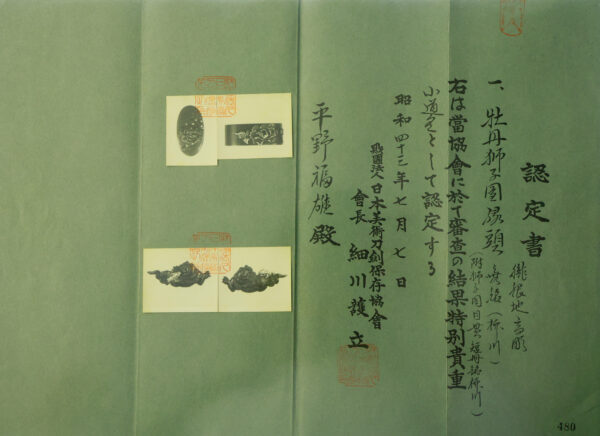 認定書
一、牡丹獅子図縁頭
赤銅地高彫
無銘(柳川)
(附獅子図目貫短冊銘柳川)
右は當協會に於て審査の結果特別貴重
小道具として認定する
昭和四十三年七月七日
財團法人日本美術刀剣保存協會
會長 細川護立
平野福雄殿
480